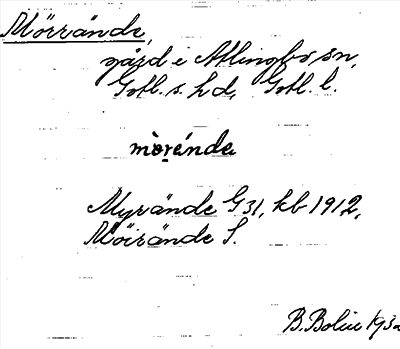 Mörrände,
gård i Atlingbo sn,
Gotl. s. hd, Gotl. l.
mòrénde
Myrände G31, kb 1912,
Möirände S.
B. Bolin